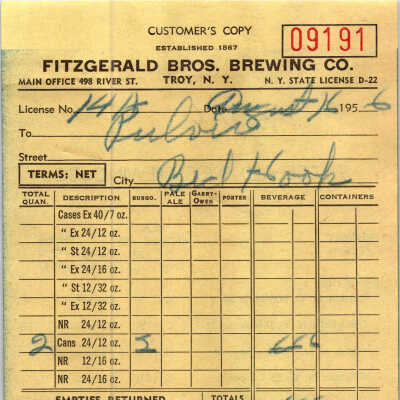 CUSTOMER'S COPY
ESTABLISHED 1867
09191
FITZGERALD BROS. BREWING CO.
MAIN OFFICE 498 RIVER ST. TROY, N. Y. N. Y. STATE LICENSE D-22
License No. Date August 16 1956
To
Street
TERMS: NET
City Red Hook
TOTAL QUAN. DESCRIPTION BURGO. PALE ALE GARRY-OWEN PORTER BEVERAGE CONTAINERS
Cases Ex 40/7 oz.
" Ex 24/12 oz.
" St 24/12 oz.
" Ex 24/16 oz.
" St 12/32 oz.
" Ex 12/32 oz.
NR 24/12 oz.
2 Cans 24/12 oz.
NR 12/16 oz.
NR 24/16 oz.
EMPTIES RETURNED TOTALS